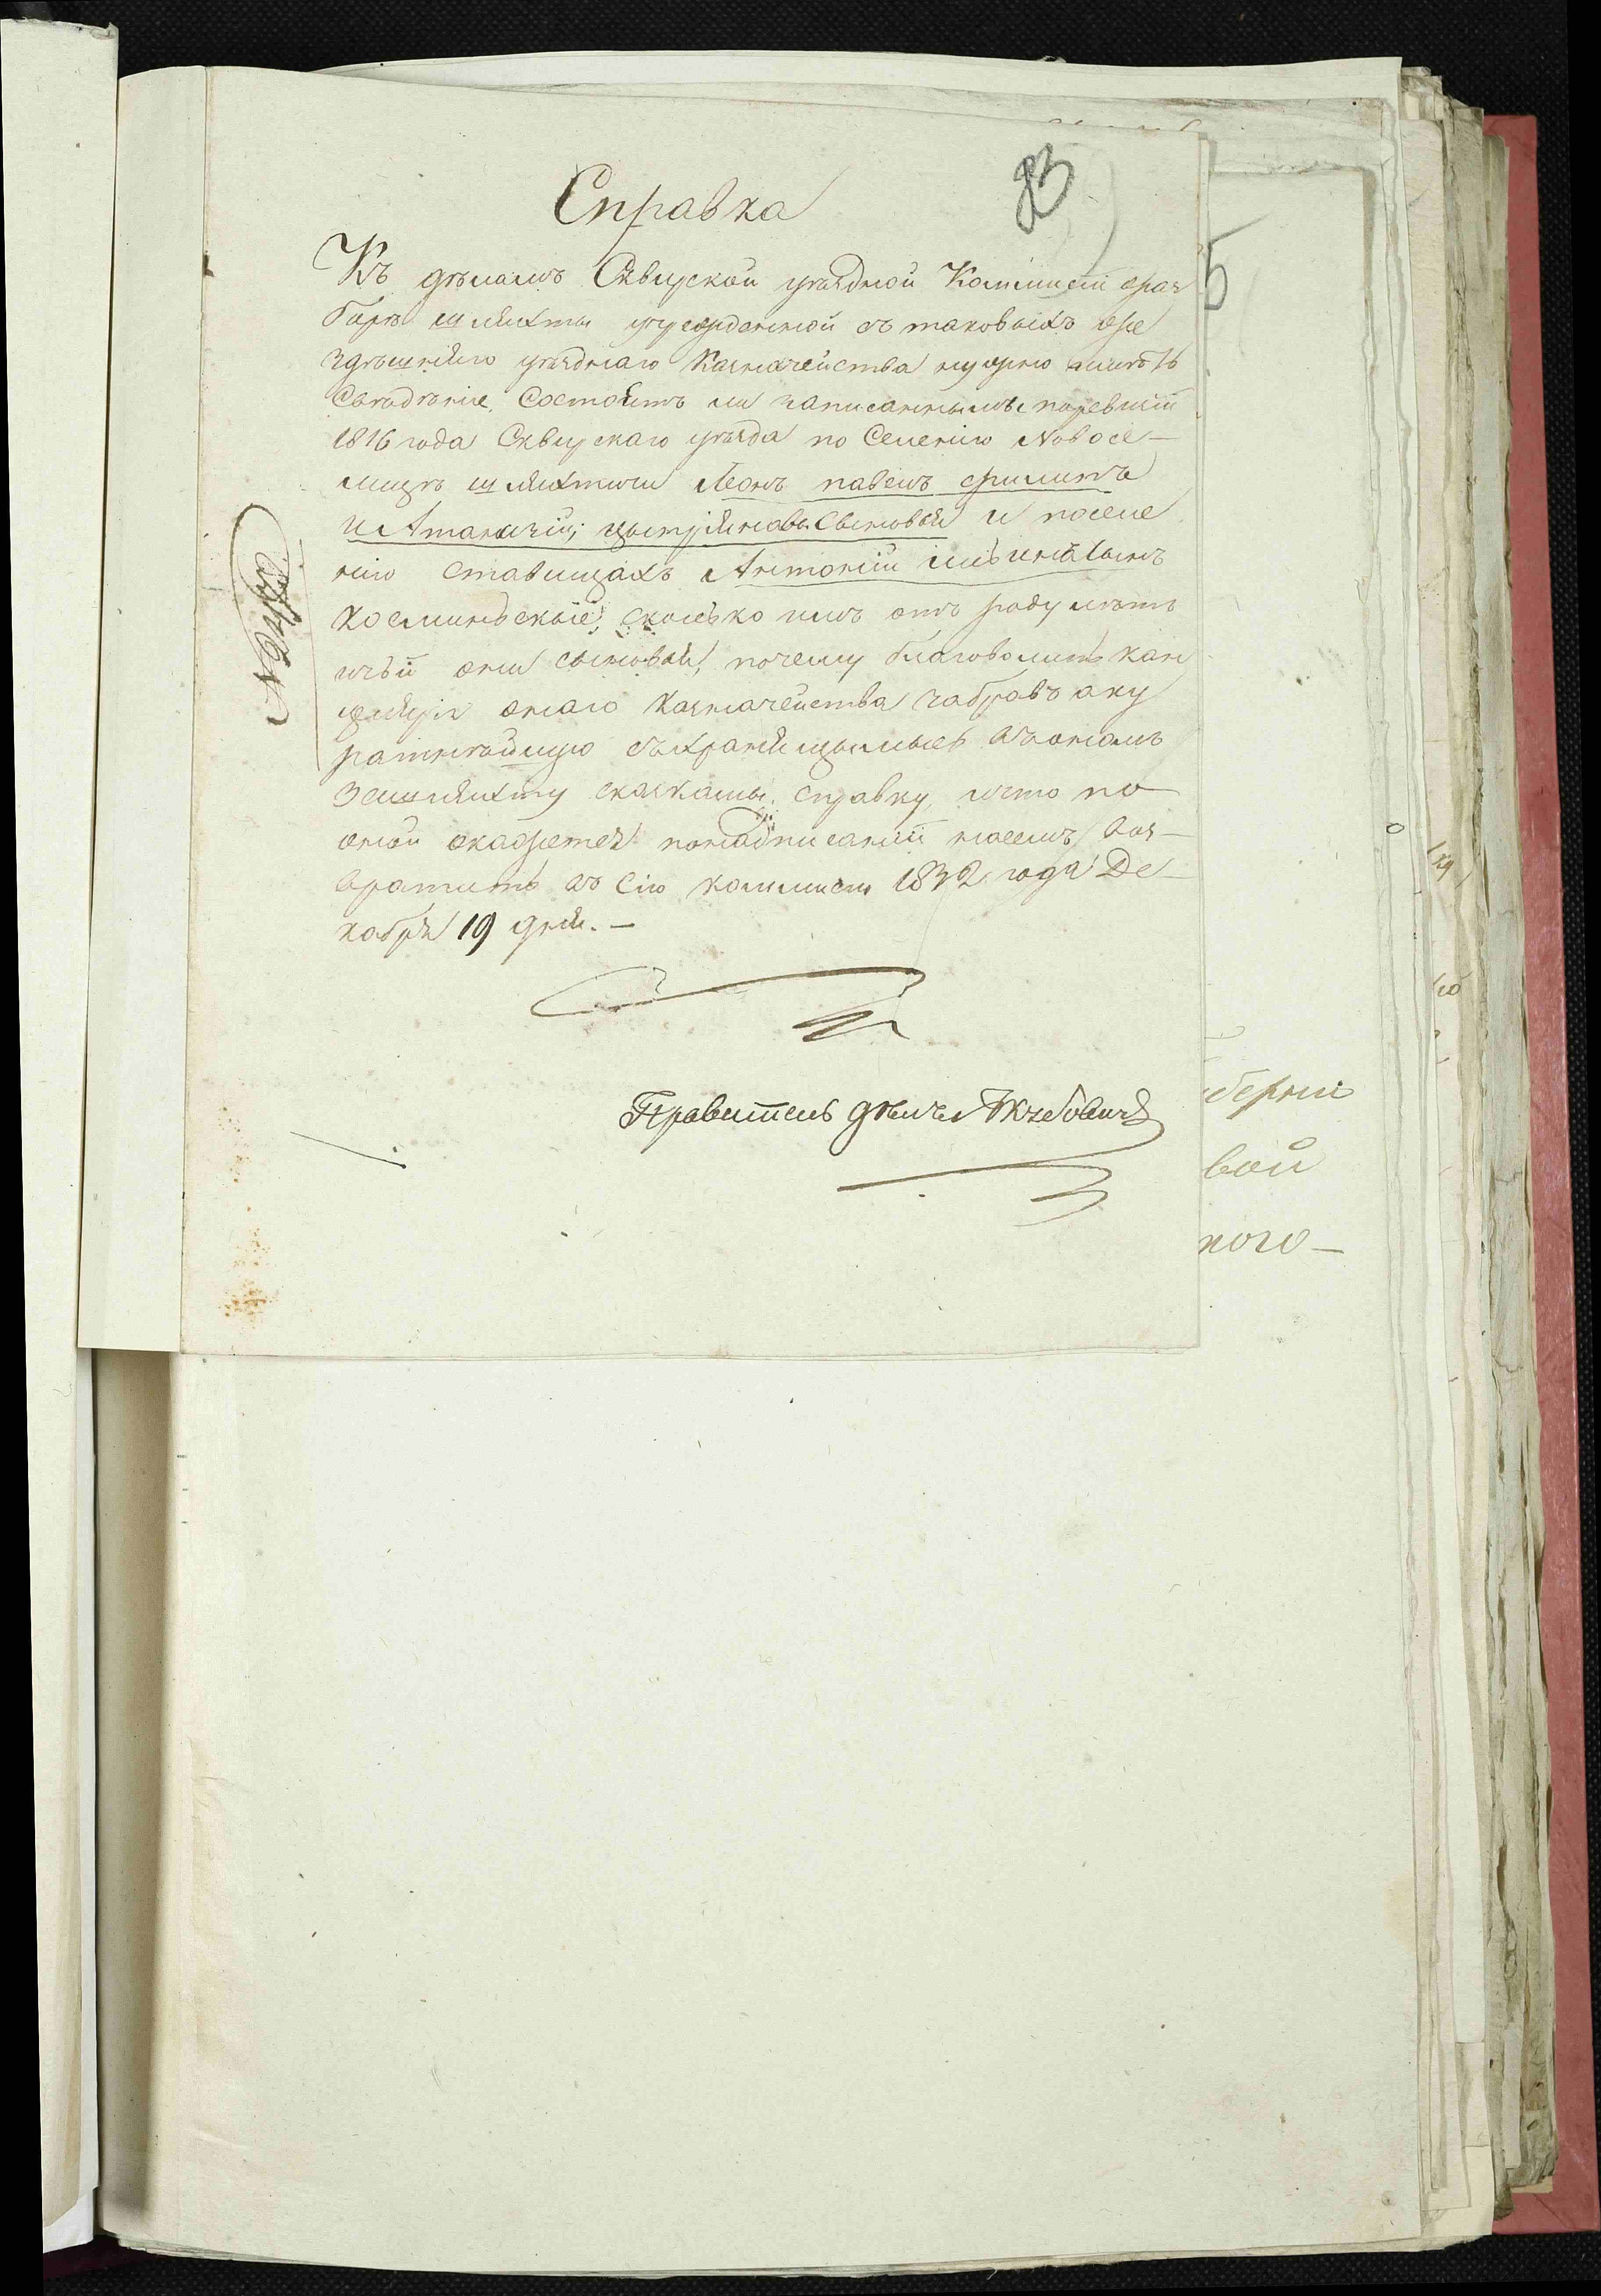 83
Справка
Къ дѣламъ Сквирской уѣздной Коммисіи о раз
борѣ шляхты учрежденной съ таковыхъ же
здѣшняго уѣзднаго Казначейства нужно имѣть
Свѣдѣніе, Состоятъ ли записанными поревизіи
1816 года Сквирскаго уѣзда по Селенію Новосе-
лицѣ шляхтичи Леонъ павелъ филипъ
и Атаназій, Сыновья и поселе
нію Ставищахъ Антоній
Косминьскіе, сколько имъ отъ роду лѣтъ
чьи они сыновья, почему благоволитъ кан
целярія онаго Казначейства забравъ аку
ратнѣйшую съхранящимысь въ ономъ
о шляхту сказками справку, что по
оной окажется понадписаніи насемъ воз-
вратить въ Сію коммисію 1832 года Де-
кабря 19 дня. —
Правитель дѣлъ
№
5
берніи
вой
ного —